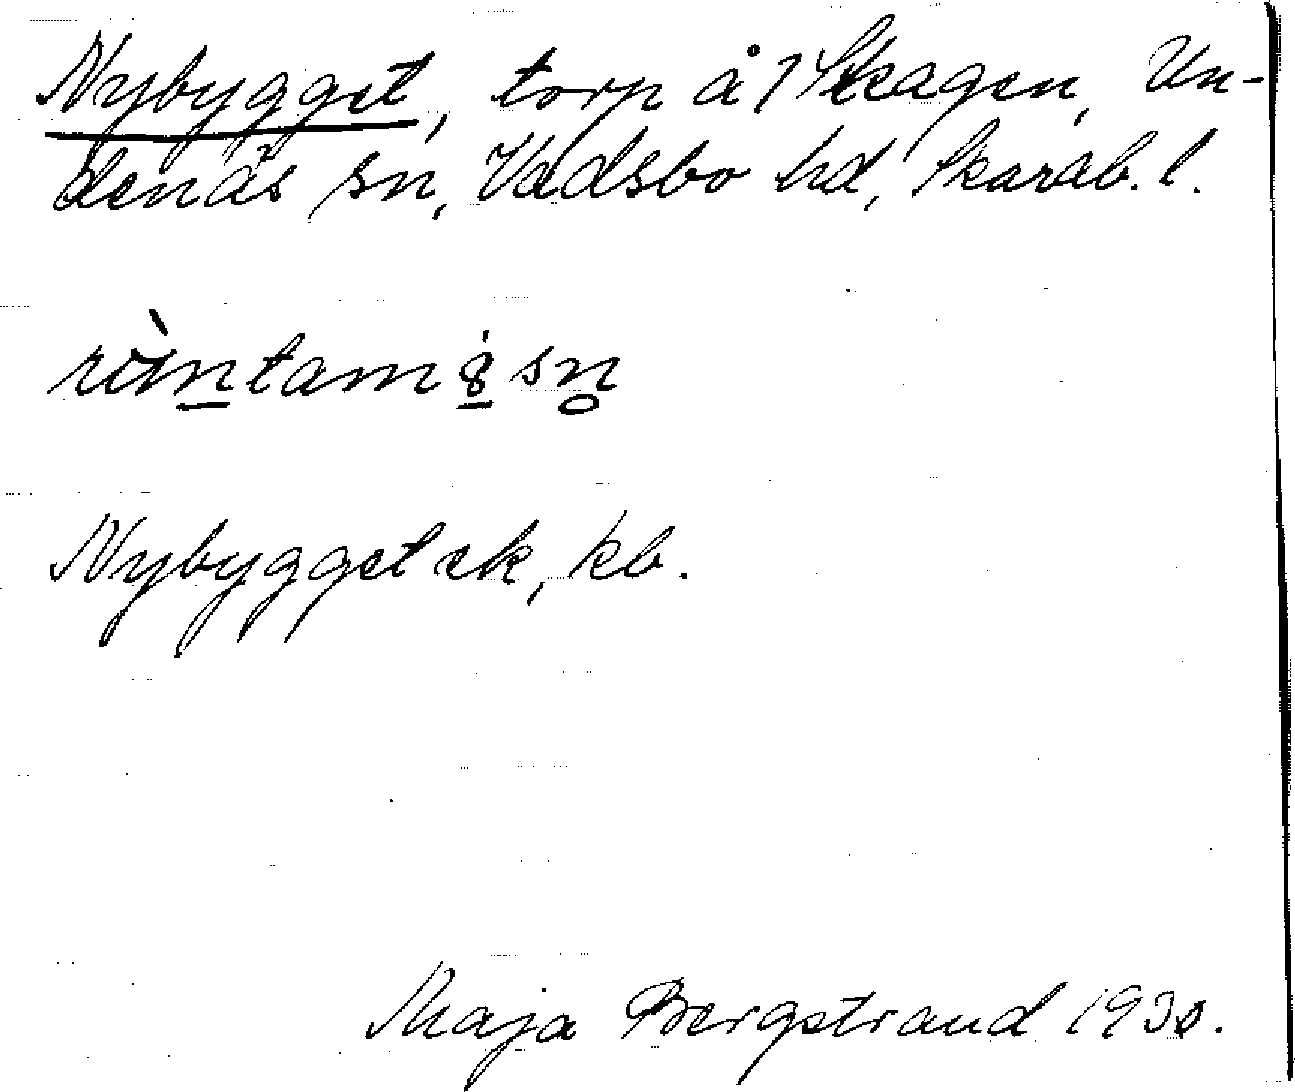 Nybygget, torp å 1 Skagen, Un-
denäs sn, Vadsbo hd, Skarab. l.
Nybygget ek, kb.
Maja Bergstrand 1930.